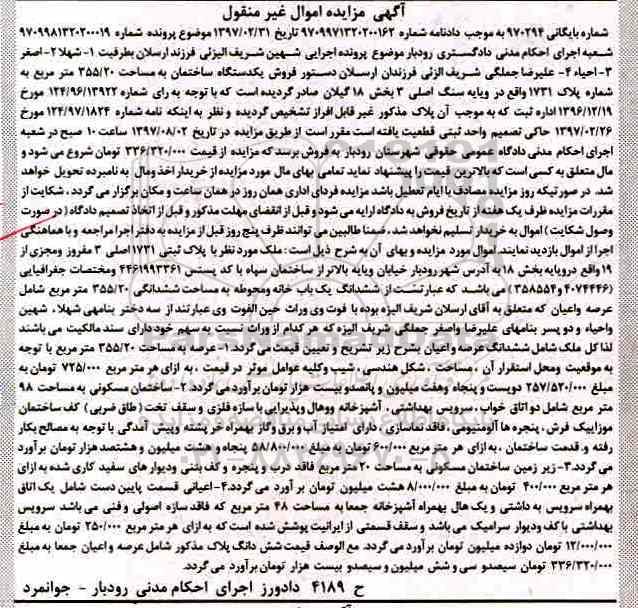 آگهی مزایده اموال غیر منقول
شماره بایگانی ۹۷۰۲۹۴ به موجب دادنامه شماره ۹۷۰۹۹۷۱۳۲۰۲۰۰۱۶۲ تاریخ ۱۳۹۷/۰۲/۳۱ موضوع پرونده شماره ۹۷۰۹۹۸۱۳۲۰۳۰۰۰۱۹
شعبه اجرای احکام مدنی دادگستری رودبار موضوع پرونده اجرایی شهین شریف الیزئی فرزند ارسلان بطرفیت ۱- شهلا ۲- اصغر
۳- احیاء ۴- علیرضا جملگی شریف الزئی فرزندان ارسلان دستور فروش یکدستگاه ساختمان به مساحت ۳۵۵/۲۰ متر مربع به
شماره پلاک ۱۷۳۱ واقع در ویایه سنگ اصلی ۳ بخش ۱۸ گیلان صادر گردیده است که با توجه به رای شماره ۱۲۴/۹۶/۱۳۹۲۲ مورخ
۱۳۹۶/۱۲/۱۹ اداره ثبت که به موجب آن پلاک مذکور غیر قابل افراز تشخیص گردیده و نظر به اینکه نامه شماره ۱۲۴/۹۷/۱۸۲۴ مورخ
۱۳۹۷/۰۲/۲۶ حاکی تصمیم واحد ثبتی قطعیت یافته است مقرر است از طریق مزایده در تاریخ ۱۳۹۷/۰۸/۰۲ ساعت ۱۰ صبح در شعبه
اجرای احکام مدنی دادگاه عمومی حقوقی شهرستان رودبار به فروش برسد که مزایده از قیمت ۳۳۶/۳۲۰/۰۰۰ تومان شروع می شود و
مال متعلق به کسی است که بالاترین قیمت را پیشنهاد نماید تمامی بهای مال مورد مزایده از خریدار اخذ ومال به نامبرده تحویل خواهد
شد. در صورتیکه روز مزایده مصادف با ایام تعطیل باشد مزایده فردای اداری همان روز در همان ساعت و مکان برگزار می گردد ، شکایت از
مقررات مزایده ظرف یک هفته از تاریخ فروش به دادگاه ارایه می شود و قبل از انقضای مهلت مذکور و قبل از اتخاذ تصمیم دادگاه ( در صورت
وصول شکایت ) اموال به خریدار تسلیم نخواهد شد ، ضمنا طالبین می توانند ظرف پنج روز قبل از مزایده به دفتر اجرا مراجعه و با هماهنگی
اجرا از اموال بازدید نمایند. اموال مورد مزایده و بهای آن به شرح ذیل است : ملک مورد نظر با پلاک ثبتی ۱۷۳۱ اصلی ۳ مفروز ومجزی از
۱۹ واقع درویایه بخش ۱۸ به آدرس شهر رودبار خیابان ویایه بالاتر از ساختمان سپاه با کد پستی ۴۴۶۱۹۹۳۳۶۱ ومختصات جغرافیایی
(۴۰۷۴۴۴۶ و۳۵۸۵۵۴) می باشد که عبارتست از ششدانگ یک باب خانه ومحوطه به مساحت ششدانگی ۳۵۵/۲۰ متر مربع شامل
عرصه واعیان که متعلق به آقای ارسلان شریف الیزه بوده با فوت وی وراث حین الفوت وی عبارتند از سه دختر بنامهی شهلا ، شهین
واحیاء و دو پسر بنامهای علیرضا واصغر جملگی شریف الیزه که هر کدام از وراث نسبت به سهم خود دارای سند مالکیت می باشند
لذا کل ملک شامل ششدانگ عرصه و اعیان بشرح زیر تشریح و تعیین قیمت می گردد ۱- عرصه به مساحت ۳۵۵/۲۰ متر مربع با توجه
به موقعیت ومحل استقرار آن ، مساحت ، شکل هندسی ، شیب وکلیه عوامل موثر در قیمت ، به ازای هر متر مربع ۷۲۵/۰۰۰ تومان به
مبلغ ۲۵۷/۵۲۰/۰۰۰ دویست و پنجاه وهفت میلیون و پانصدو بیست هزار تومان برآورد می گردد ۲- ساختمان مسکونی به مساحت ۹۸
متر مربع شامل دو اتاق خواب ، سرویس بهداشتی ، آشپزخانه وهال وپذیرایی با سازه فلزی و سقف تخت ( طاق ضربی ) کف ساختمان
موزاییک فرش ، پنجره ها آلومنیومی ، فاقد نماسازی ، دارای امتیاز آب و برق وگاز بهمراه خر پشته وپیش آمدگی با توجه به مصالح بکار
رفته و. قدمت ساختمان ، به ازای هر متر مربع ۶۰۰/۰۰۰ تومان به مبلغ ۵۸/۸۰۰/۰۰۰ پنجاه و هشت میلیون و هشتصد هزار تومان برآورد
می گردد.۳- زیر زمین ساختمان مسکونی به مساحت ۲۰ متر مربع فاقد درب و پنجره و کف بتنی ودیوار های سفید کاری شده به ازای
هر متر مربع ۴۰۰/۰۰۰ تومان به مبلغ ۸/۰۰۰/۰۰۰ هشت میلیون تومان بر آورد می گردد.۴- اعیانی قسمت پایین دست شامل یک اتاق
بهمراه سرویس به داشتی و یک هال بهمراه آشپزخانه جمعا به مساحت ۴۸ متر مربع که فاقد سازه اصولی و فنی می باشد سرویس
بهداشتی با کف ودیوار سرامیک می باشد و سقف قسمتی از ایرانیت پوشش شده است که به ازای هر متر مربع ۲۵۰/۰۰۰ تومان به مبلغ
۱۲/۰۰۰/۰۰۰ تومان دوازده میلیون تومان برآورد می گردد. مع الوصف قیمت شش دانگ پلاک مذکور شامل عرصه و اعیان جمعا به مبلغ
۳۳۶/۳۲۰/۰۰۰ تومان سیصدو سی و شش میلیون و سیصدو بیست هزار تومان به برآورد می گردد.
ح ۴۱۸۹ دادورز اجرای احکام مدنی رودبار - جوانمرد